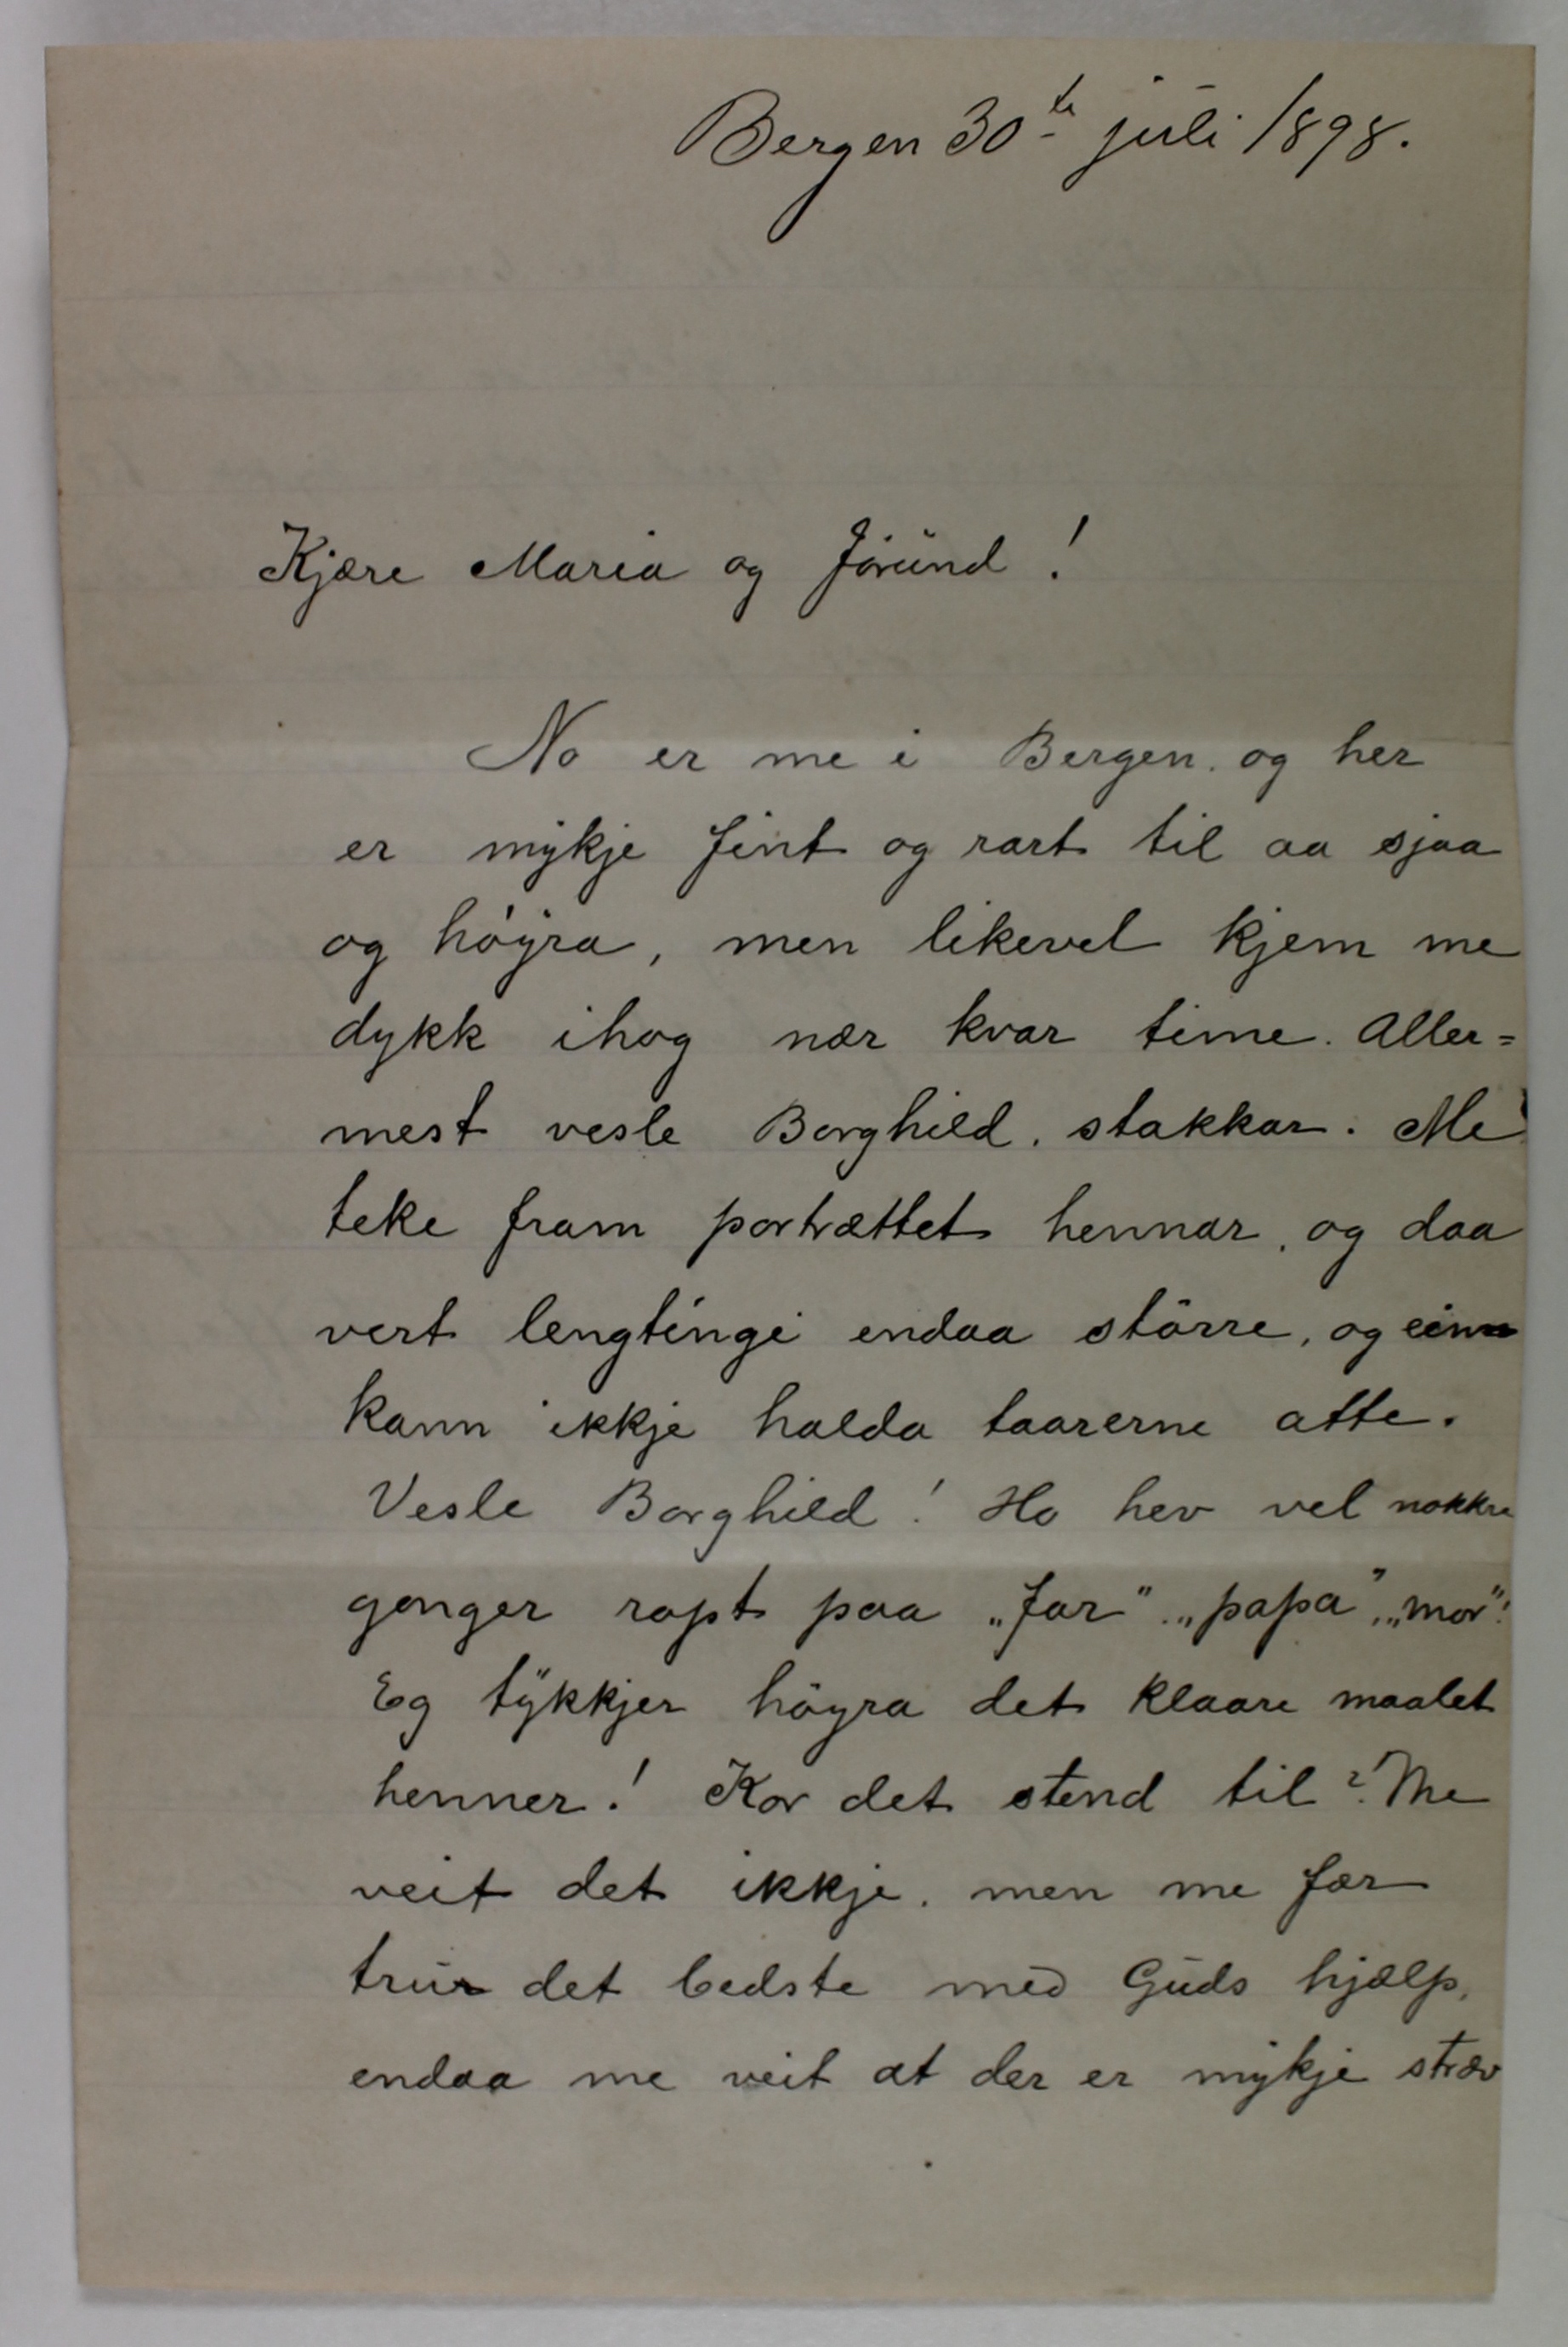 Bergen 30te juli 1898.
Kjære Maria og Jörund!
No er me i Bergen, og her
er mykje fint og rart til aa sjaa
og höyra, men likevel kjem me
dykk ihog nær kvar time. Aller=
mest vesle Borghild, stakkar. Me
teke fram portrættet hennar, og daa
vert lengtingi endaa större, og ein
kann ikkje halda taarerne atte.
Vesle Borghild! Ho hev vel nokkre
gonger ropt paa „far“, „papa“, „mor“!
Eg tykkjer höyra det klaare maalet
henner! Kor det stend til? Me
veit det ikkje, men me fær
tru det bedste med Guds hjælp,
endaa me veit at der er mykje stræv